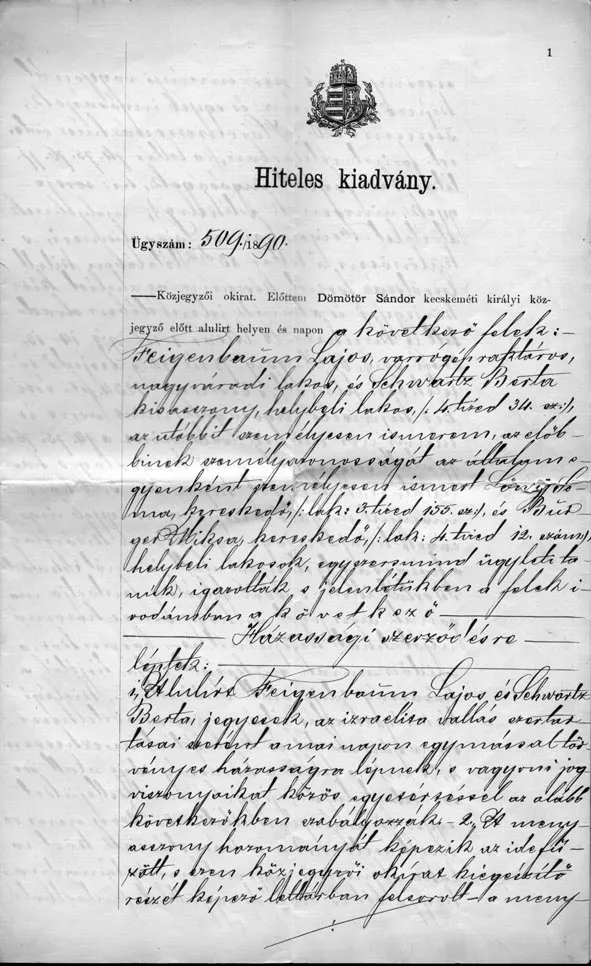 1
Hiteles kiadvány.
Ügyszám: 509./1890.
Közjegyzői okirat. Előttem Dömötör Sándor kecskeméti királyi köz-
jegyző előtt alulirt helyen és napon a következő felek: –
Feigenbaum Lajos, varrógépraktáros,
nagyváradi lakos, és Schwartz Berta
kisasszony, helybeli lakos, /: 4. tized 34. sz:/,
az utóbbit személyesen ismerem, az előb-
binek személyazonosságát az általam e-
gyenként személyesen ismert Lőwy So-
ma, kereskedő, /: lak: 3. tized 155. sz:/, és Bür-
ger Miksa, kereskedő, /: lak: 4. tized 12. szám:/,
helybeli lakosok, egyszersmind ügyleti ta-
núk, igazolták s jelenlétükben a felek i-
rodámban a következő
Házassági szerződésre
léptek:
1, Alulírt Feigenbaum Lajos, és Schwartz
Berta, jegyesek, az izraelita vallás szertar-
tásai szerint a mai napon egymással tör-
vényes házasságra lépnek, s vagyoni jog-
viszonyaikat közös egyetértéssel az alább
következőkben szabályozzák. – 2, A meny-
asszony hozományát képezik az idefű-
zött, s ezen közjegyzői okirat kiegészítő
részét képező leltárban felsorolt – a meny-